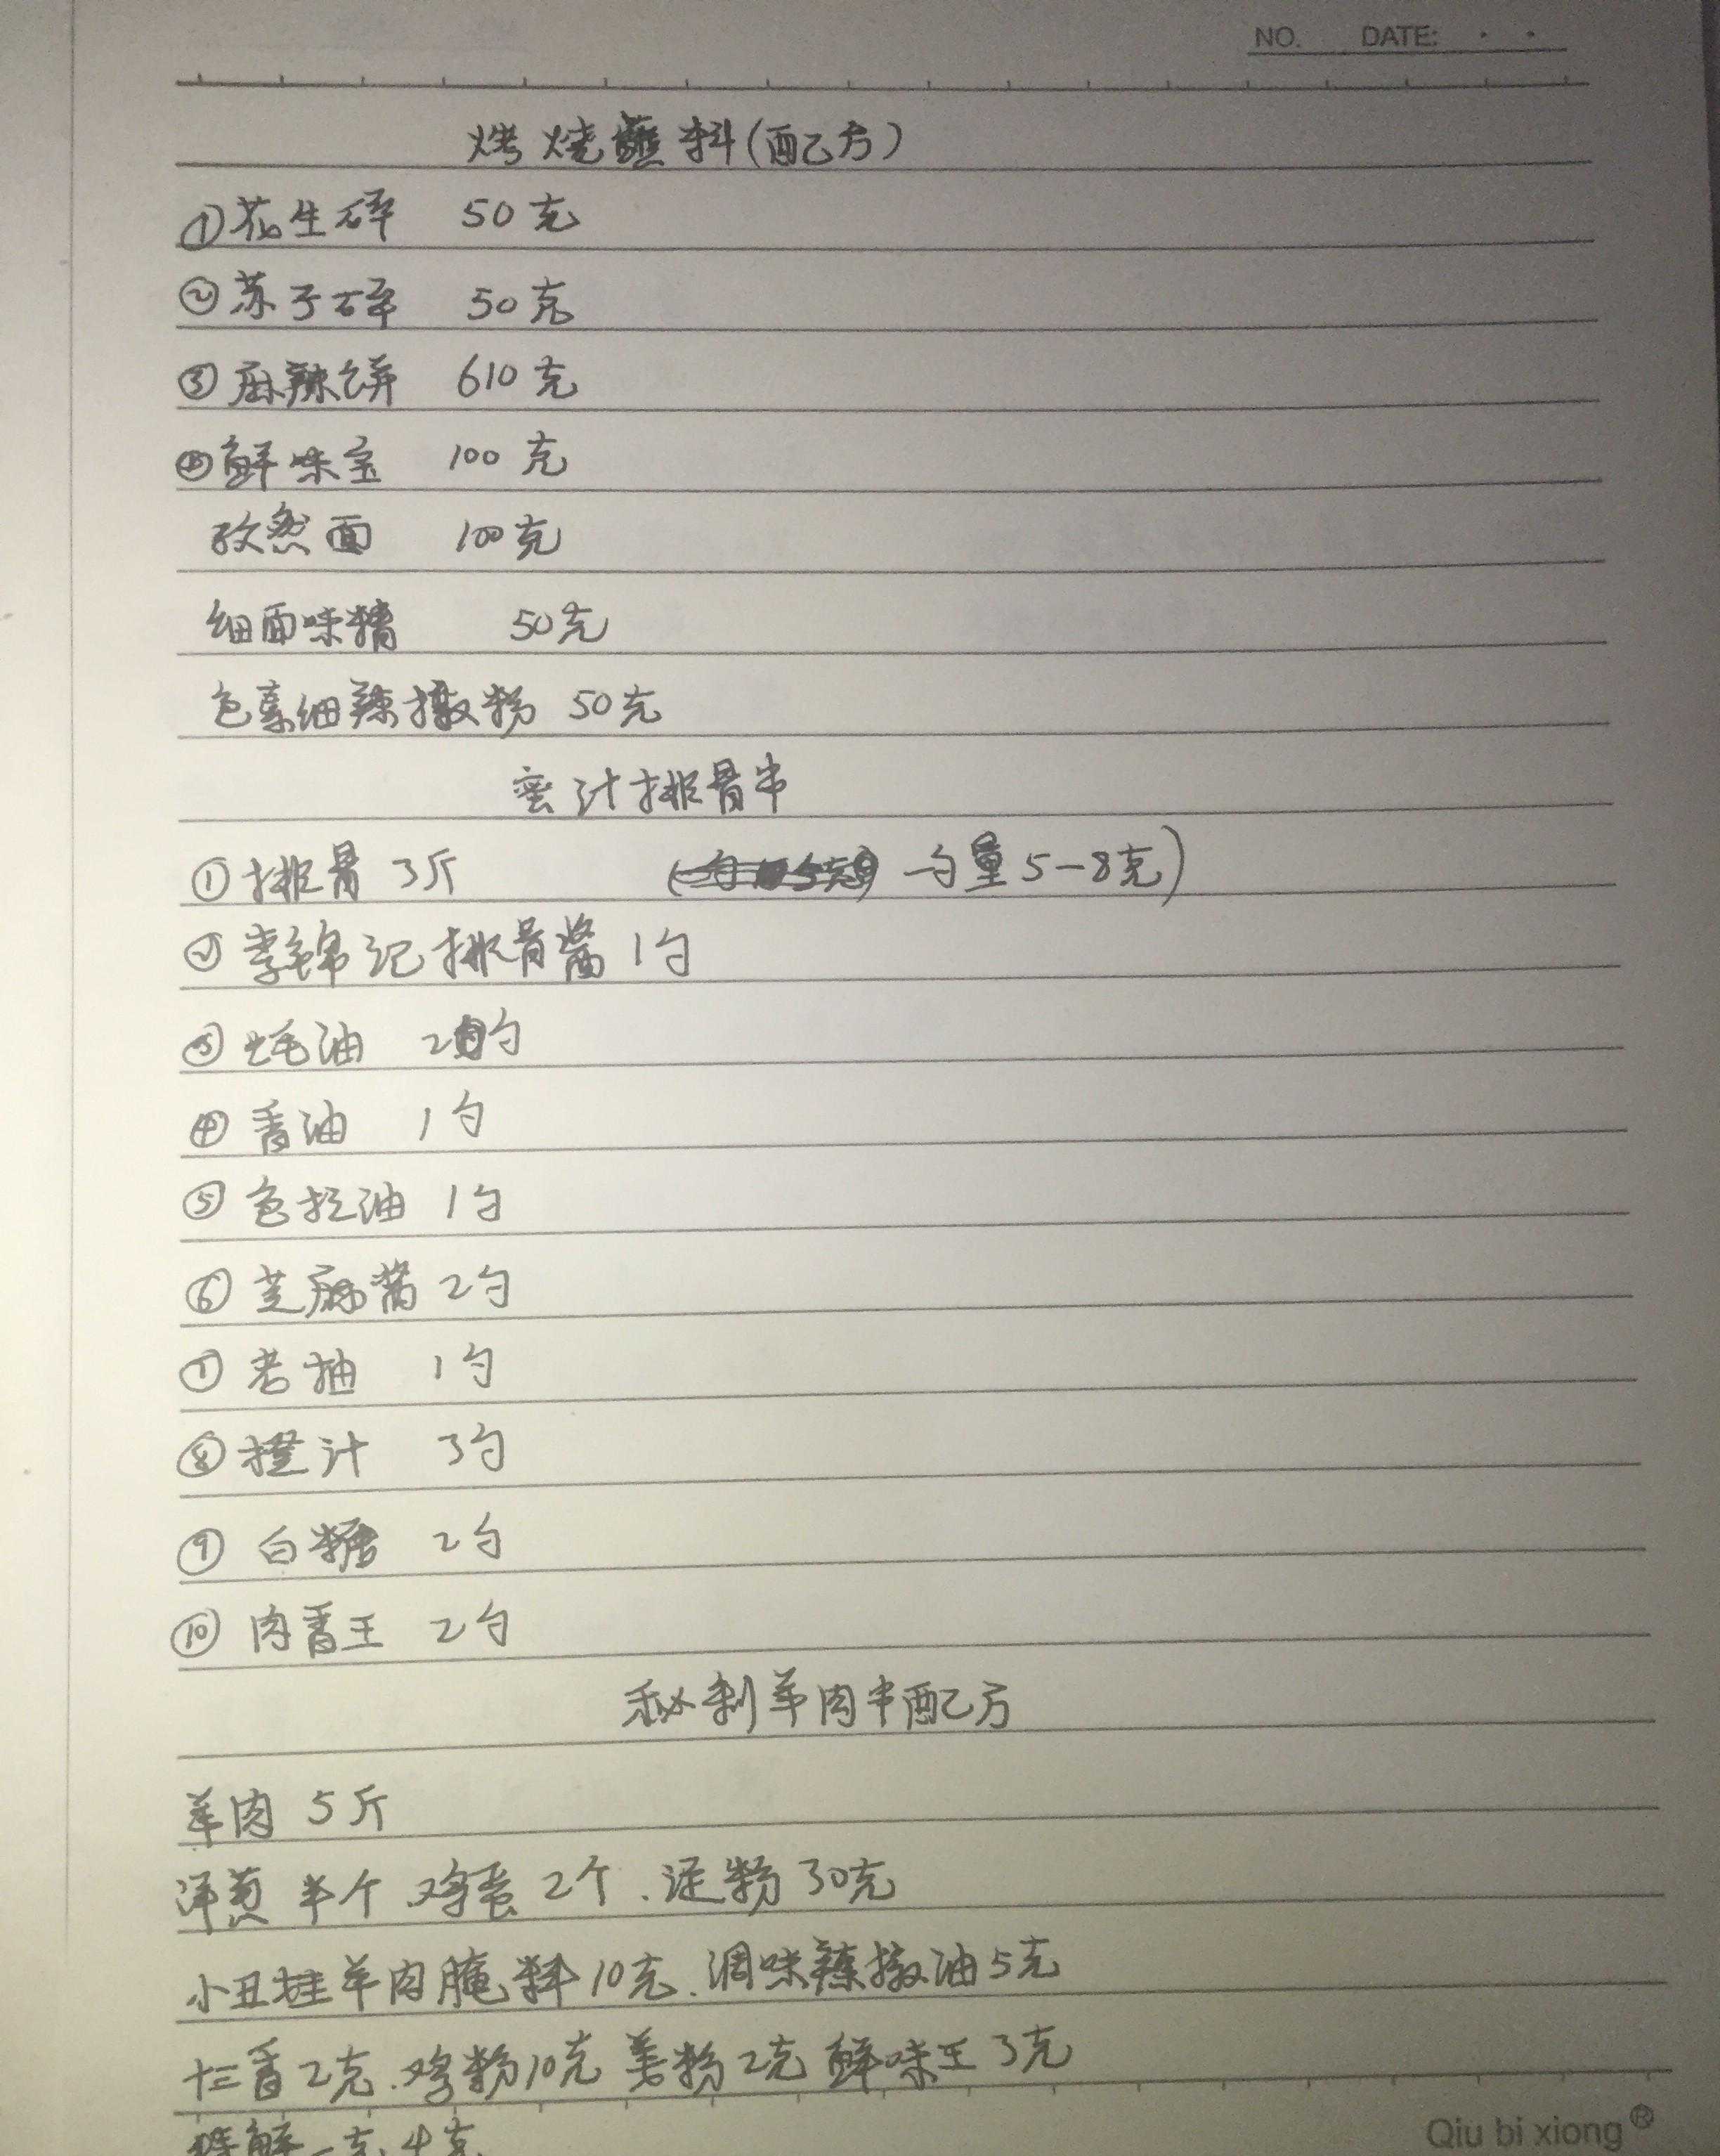 NO. DATE: · ·
烤烧蘸料(配方)
①花生碎 50克
②苏子碎 50克
③麻辣饼 610克
④鲜味宝 100克
孜然面 100克
细面味精 50克
色素细辣椒粉 50克
蜜汁排骨串
①排骨 3斤 勺量5-8克)
②李锦记排骨酱 1勺
③蚝油 2勺
④香油 1勺
⑤色拉油 1勺
⑥芝麻酱 2勺
⑦老抽 1勺
⑧橙汁 3勺
⑨白糖 2勺
⑩肉香王 2勺
秘制羊肉串配方
羊肉 5斤
洋葱 半个 鸡蛋 2个、淀粉 30克
小丑娃羊肉腌料10克、调味辣椒油5克
十三香2克、鸡粉10克 姜粉2克 鲜味王 3克
4克
Qiu bi xiong®